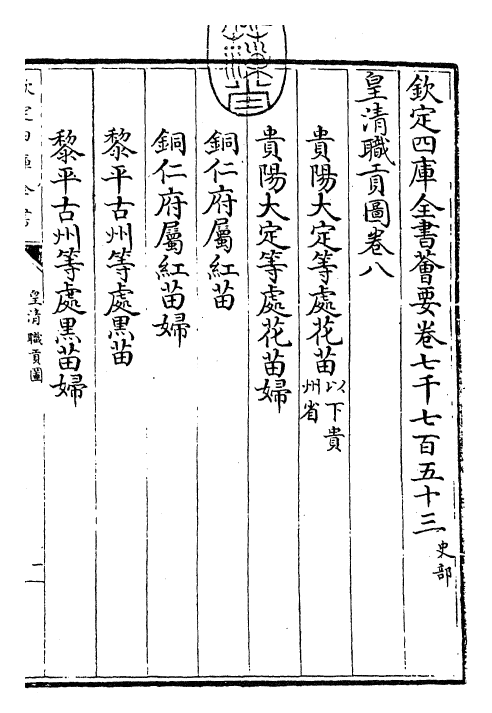 欽定四庫全書薈要卷七千七百五十三 史部
皇清職貢圖卷八
貴陽大定等處花苗 以下貴州省
貴陽大定等處花苗婦
銅仁府屬紅苗
銅仁府屬紅苗婦
黎平古州等處黑苗
黎平古州等處黑苗婦
皇清職貢圖